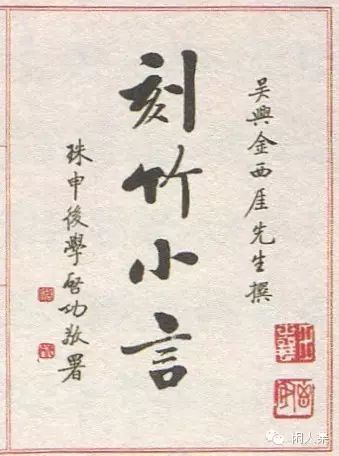 吴興金西厓先生撰
刻竹小言
珠申後學启功敬署
闲人杂